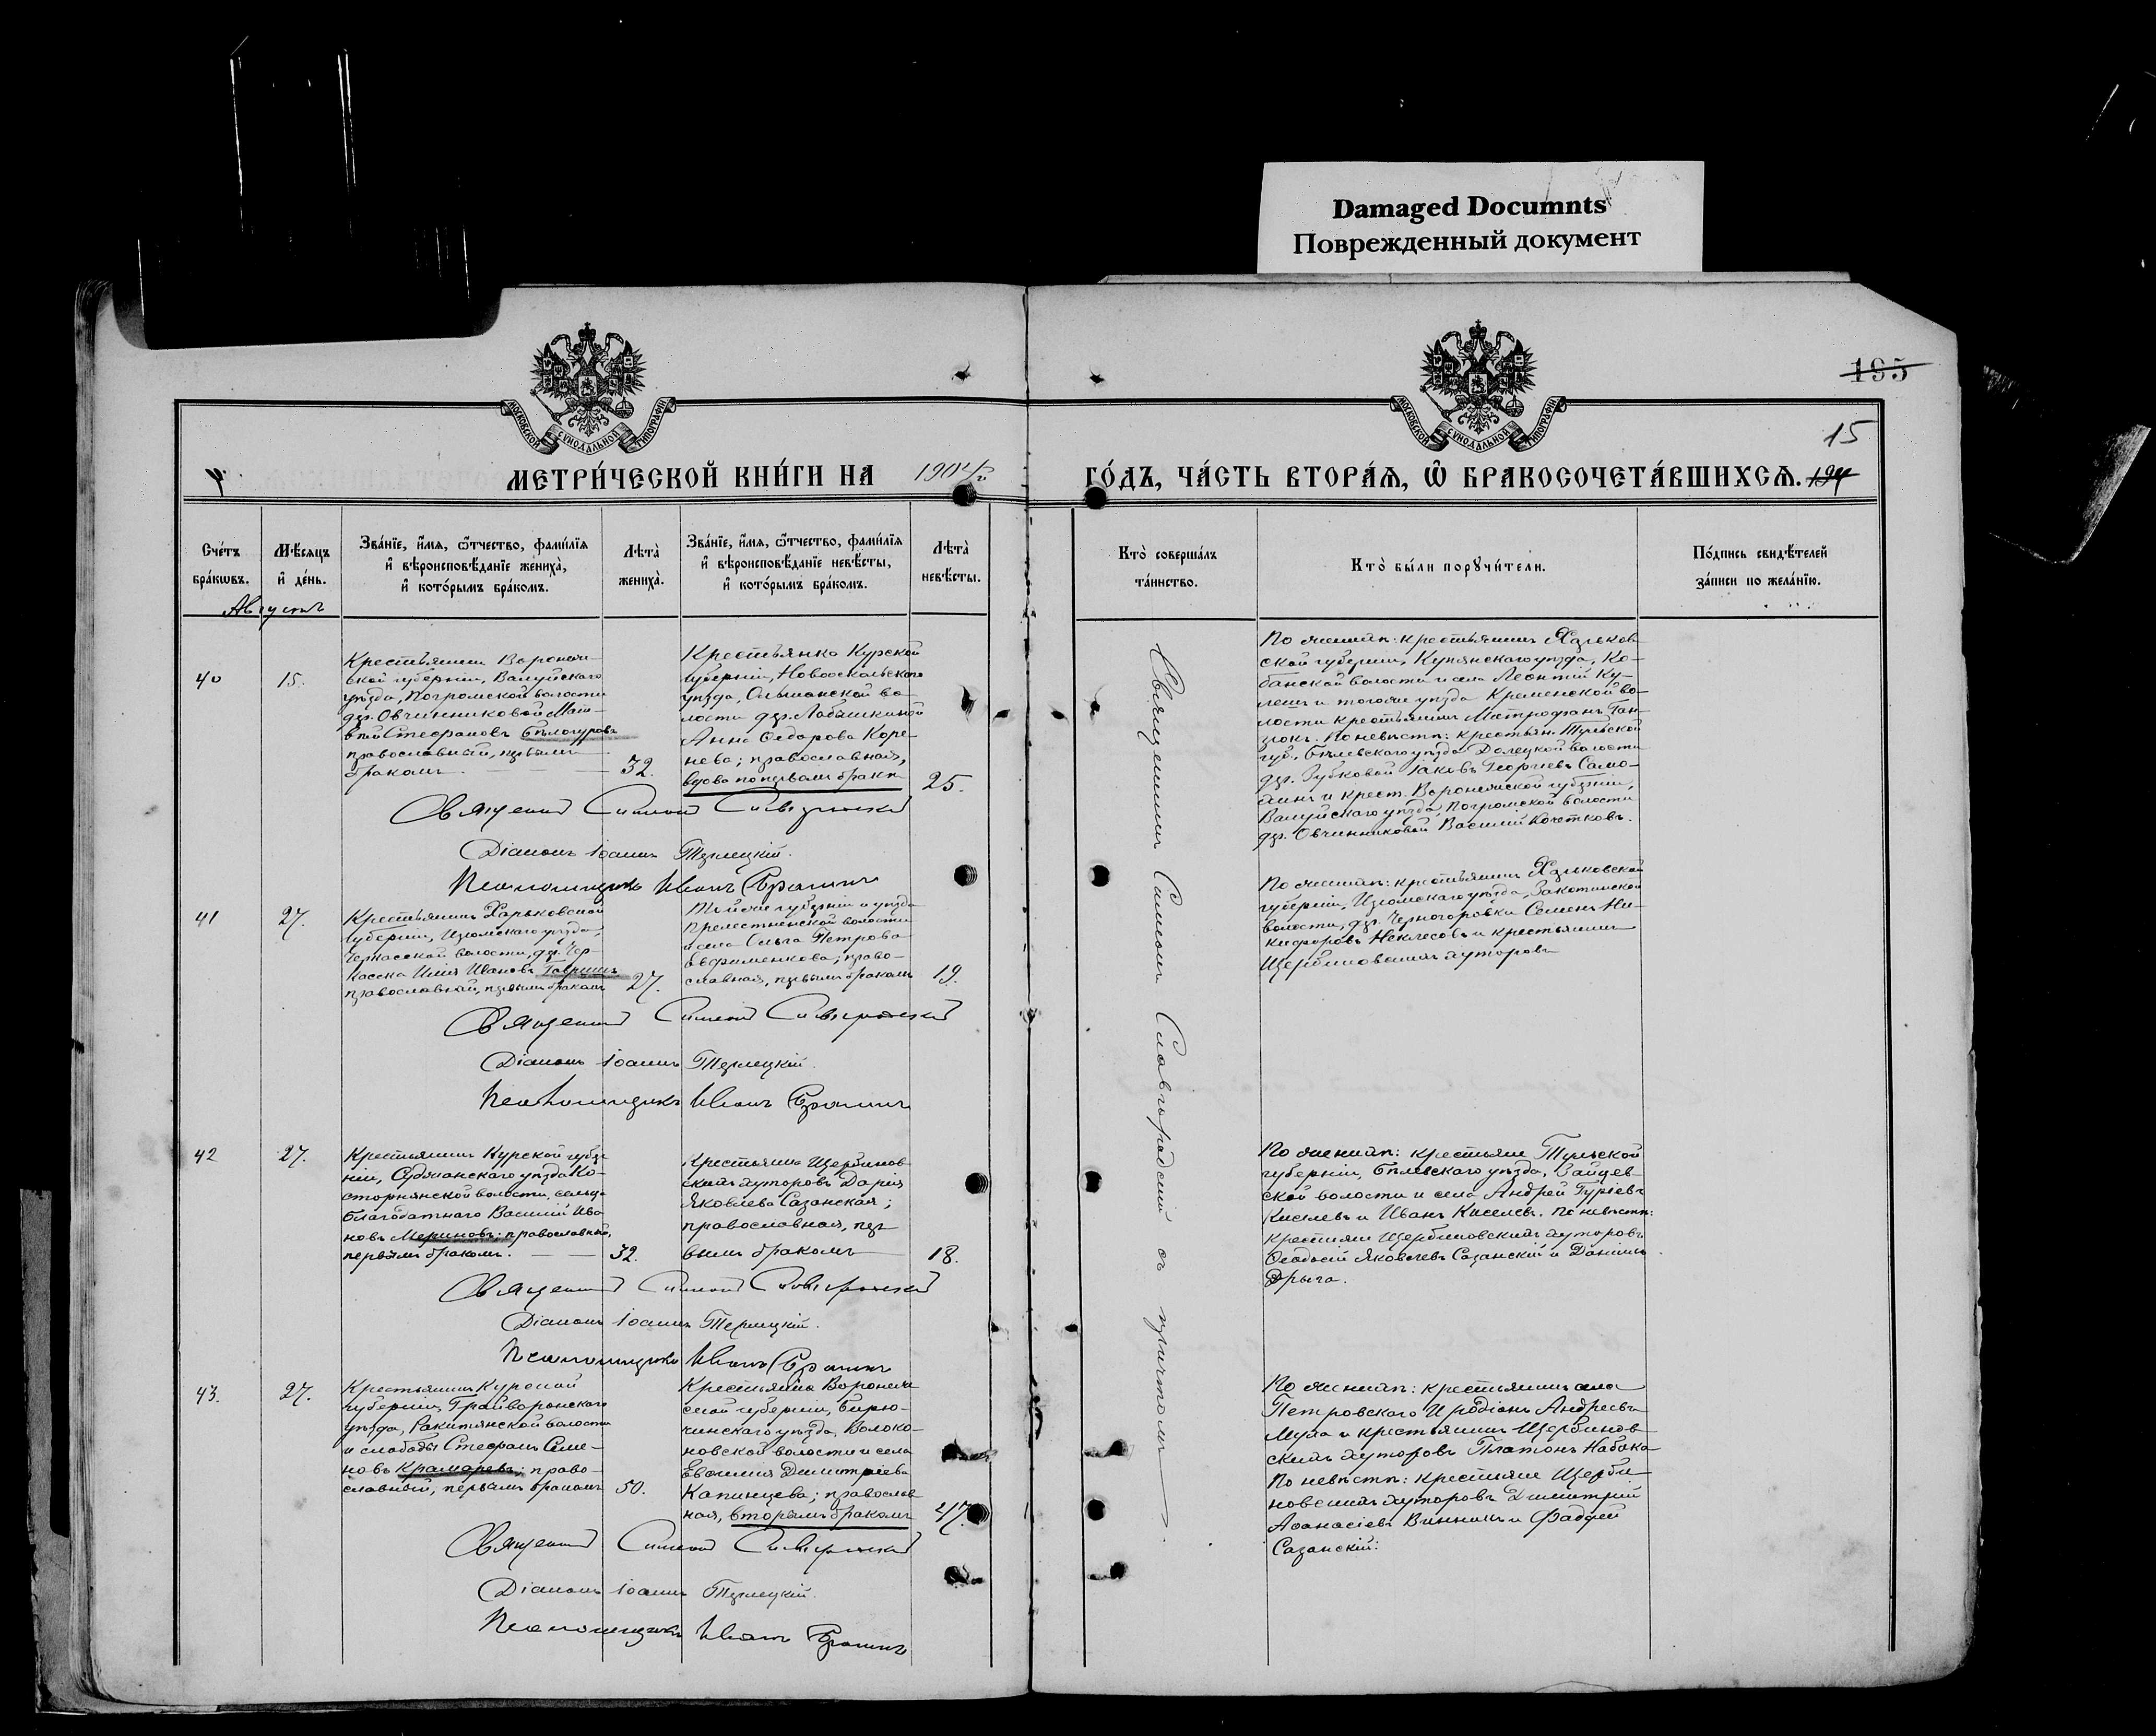 Damaged Documnts
Поврежденный документ
195
15
МОСКОВСКОЙ СѴНОДАЛЬНОЙ ТИПОГРАФІИ
МОСКОВСКОЙ СѴНОДАЛЬНОЙ ТИПОГРАФІИ
МЕТРИ́ЧЕСКОЙ КНИ́ГИ НА 1904 ГО́ДЪ, ЧА́СТЬ ВТОРА́Ѧ, Ѽ БРАКОСОЧЕТА́ВШИХСѦ. 194
Сче́тъ бра́кѡвъ.
Мѣ́сяцъ и҆ де́нь.
Зва́нїе, и҆́мя, ѻ҆́тчество, фами́лїя и҆ вѣроисповѣ́данїе жениха̀, и҆ кото́рымъ бра́комъ.
Лѣта̀ жениха̀.
Зва́нїе, и҆́мя, ѻ҆́тчество, фами́лїя и҆ вѣроисповѣ́данїе невѣ́сты, и҆ кото́рымъ бра́комъ.
Лѣта̀ невѣ́сты.
Кто̀ соверша́лъ та́инство.
Кто̀ бы́ли порꙋчи́тели.
По́дпись свидѣ́телей за́писи по жела́нїю.
Августъ
40
15.
Крестьянинъ Воронеж-
ской губерніи, Валуйскаго
уѣзда, Погромской волости
дер. Овчинниковой Мат-
вѣй Стефановъ Бѣлогуровъ
православный, первымъ
бракомъ.
32.
Крестьянка Курской
губерніи, Новооскольскаго
уѣзда, Ольшанской во-
лости дер. Лобышкиной
Анна Ѳедорова Коре-
нева; православная,
вдова по первомъ бракѣ
25.
По женихѣ: крестьянинъ Харьков-
ской губерніи, Купянскаго уѣзда, Ко-
банской волости и села Леонтій Ку-
лешъ и того же уѣзда Кременской во-
лости крестьянинъ Митрофанъ Ган-
зюкъ. По невѣстѣ: крестьян. Тульской
губ., Бѣлевскаго уѣзда Долецкой волости
дер. Зубковой Іаковъ Георгіевъ Само-
хинъ и крест. Воронежской губерніи,
Валуйскаго уѣзда, Погромской волости
дер. Овчинниковой Василій Кочетковъ.
Священникъ Симеонъ
Діаконъ Іоаннъ Терлецкій.
Псаломщикъ Иванъ
41
27.
Крестьянинъ Харьковской
губерніи, Изюмскаго уѣзда,
Черкасской волости, дер. Чер-
касска Илія Ивановъ Гавришъ
православный, первымъ бракомъ
27.
Той же губерніи и уѣзда
Прелестненской волости
и села Ольга Петрова
Евфименкова; право-
славная, первымъ бракомъ
19.
По женихѣ: крестьянинъ Харьковской
губерніи, Изюмскаго уѣзда, Закотинской
волости, дер. Черногоровки Семенъ Ни-
кифоровъ Неклесовъ и крестьянинъ
Щербиновскихъ хуторовъ
Священникъ Симеонъ
Діаконъ Іоаннъ Терлецкій.
Псаломщикъ Иванъ
42
27.
Крестьянинъ Курской губер-
ніи, Суджанскаго уѣзда Ко-
сторнянской волости, сельца
Благодатнаго Василій Ива-
новъ Мериновъ; православный,
первымъ бракомъ.
32.
Крестьянка Щербинов-
скихъ хуторовъ Дарія
Яковлева Сазанская;
православная, пер-
вымъ бракомъ
18.
По женихѣ: крестьяне Тульской
губерніи, Бѣлевскаго уѣзда, Зайцев-
ской волости и села Андрей Гуріевъ
Киселевъ и Иванъ Киселевъ. По невѣстѣ:
крестьяне Щербиновскихъ хуторовъ
Ѳеодосій Яковлевъ Сазанскій и Даніилъ
Дрыга.
Священникъ Симеонъ
Діаконъ Іоаннъ Терлецкій.
Псаломщикъ Иванъ
43.
27.
Крестьянинъ Курской
губерніи, Грайворонскаго
уѣзда, Ракитянской волости
и слободы Стефанъ Симе-
новъ Крамаревъ; право-
славный, первымъ бракомъ
50.
Крестьянка Воронеж-
ской губерніи, Бирю-
чинскаго уѣзда, Волоко-
новской волости и села
Евфимія Димитріева
Капинцева; православ-
ная, вторымъ бракомъ
47.
По женихѣ: крестьянинъ села
Петровскаго Иродіонъ Андреевъ
Муха и крестьянинъ Щербинов-
скихъ хуторовъ Платонъ Набока
По невѣстѣ: крестьяне Щерби-
новскихъ хуторовъ Димитрій
Аѳанасіевъ Винникъ и Фаддей
Сазанскій.
Священникъ Симеонъ
Діаконъ Іоаннъ Терлецкій.
Псаломщикъ Иванъ
Священникъ Симеонъ Славгородскій съ причтомъ.